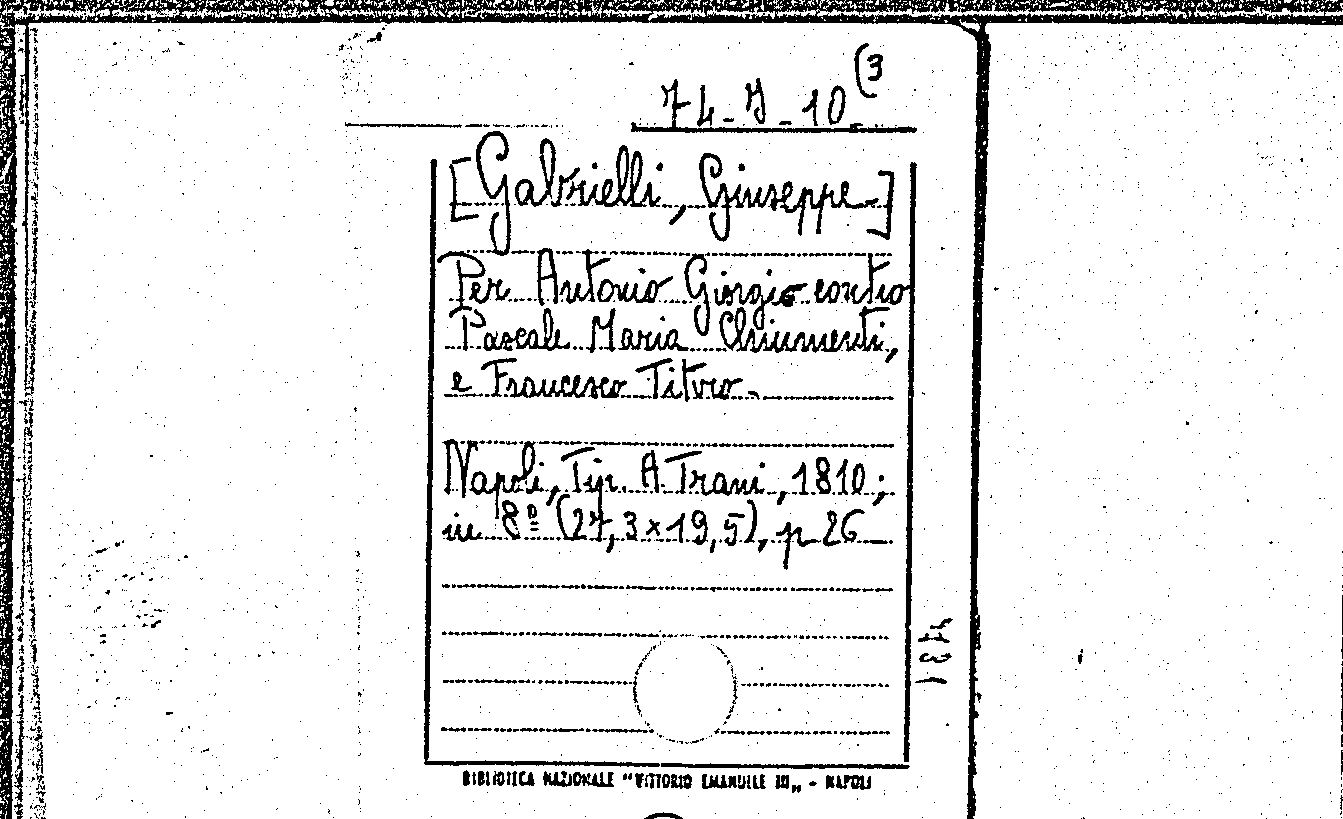 74-J-10(3
[Gabrielli, Giuseppe-]
Per Antonio Giorgio contro
Pascale Maria Chiumenti,
e Francesco Titvo-
Napoli, Tip. A. Trani, 1810;
in 8º (27,3x19,5), p 26
BIBLIOTECA NAZIONALE "VITTORIO EMANUELE III„ - NAPOLI